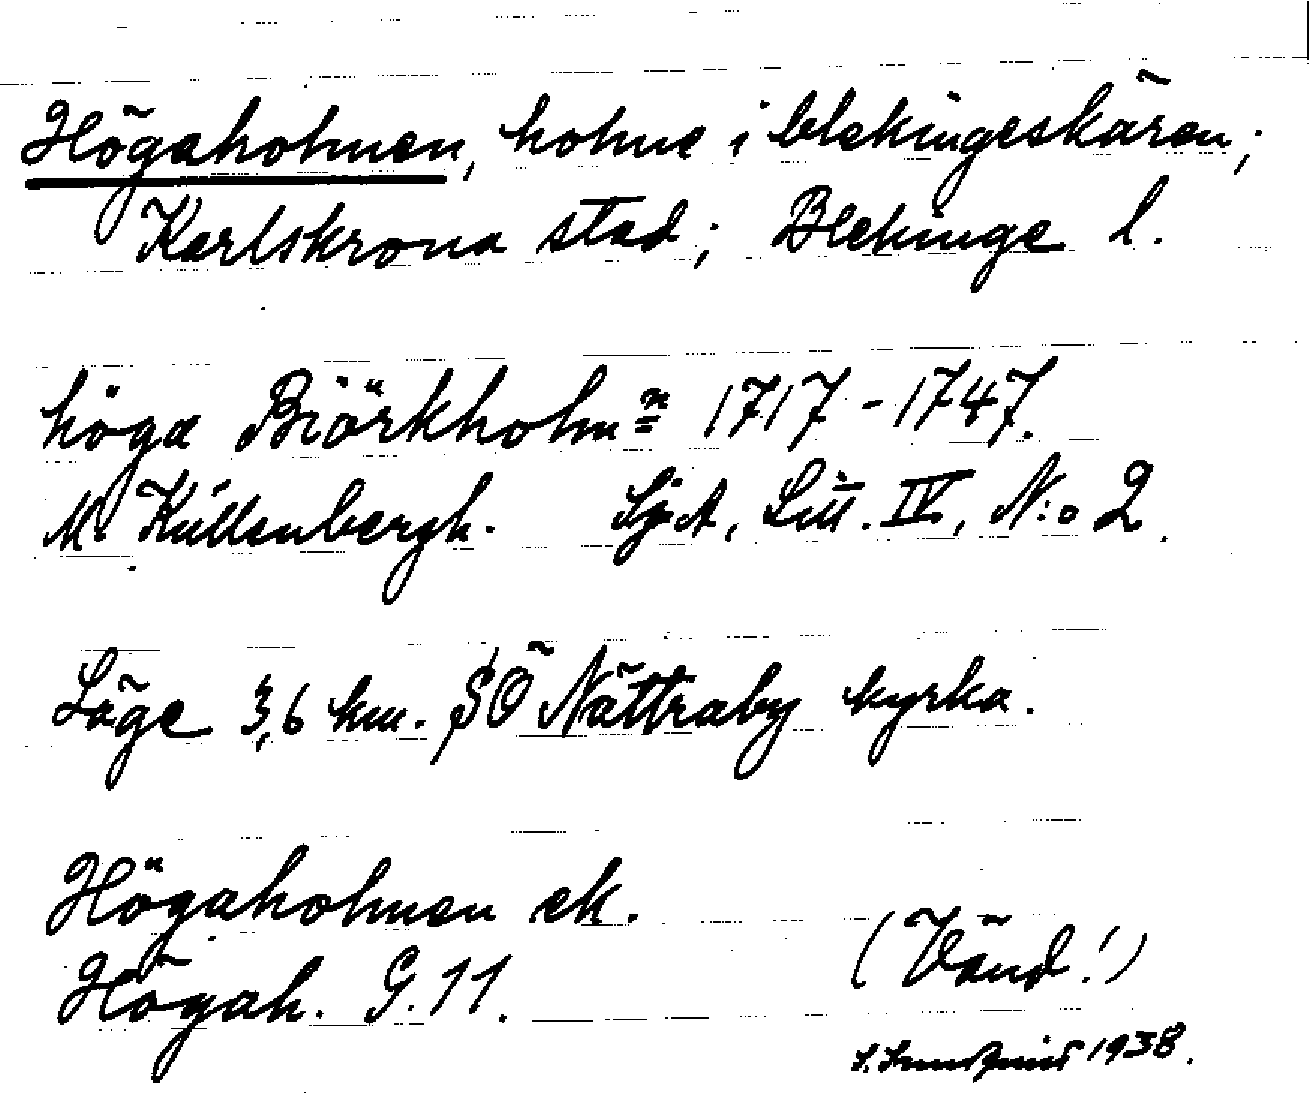 Högaholmen, holme i blekingeskären;
Karlskrona stad; Blekinge l.
höga Biörkholmn 1717-1747.
M. Kullenbergh. SjA, Litt. IV, N:o 2.
Läge 3,6 km. SÖ Nättraby kyrka.
Högaholmen ek.
Högah. G. 11.
(Vänd!)
1938.